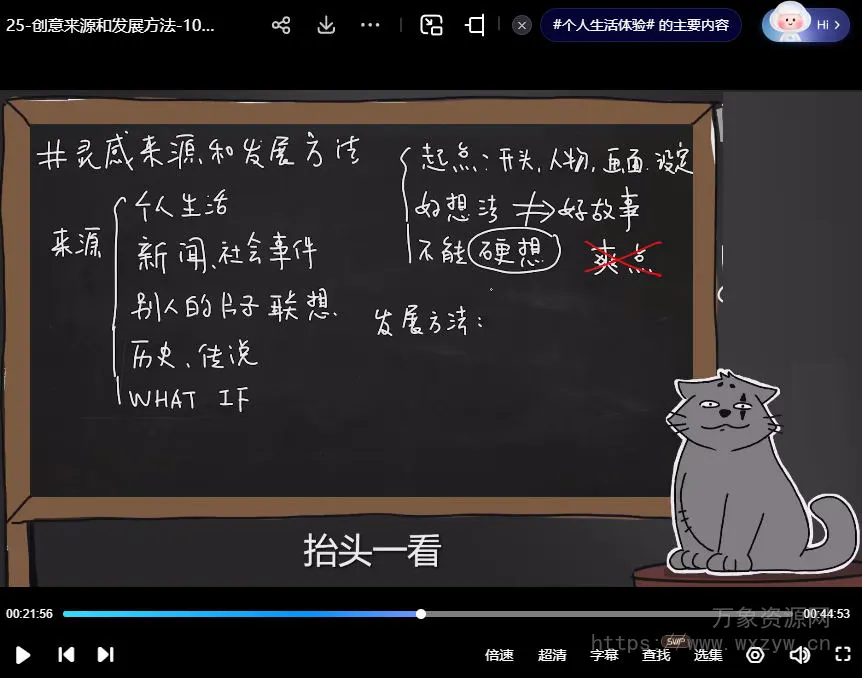 25-创意来源和发展方法-10...
#个人生活体验# 的主要内容
Hi
#灵感来源和发展方法
来源
个人生活
新闻、社会事件
别人的片子 联想
历史、传说
WHAT IF
起点：开头、人物、画面、设定
好想法 ≠> 好故事
不能硬想
爽点
发展方法：
抬头一看
00:21:56
00:44:53
万象资源网
https://www.wxzyw.cn
SVIP
倍速
超清
字幕
查找
选集